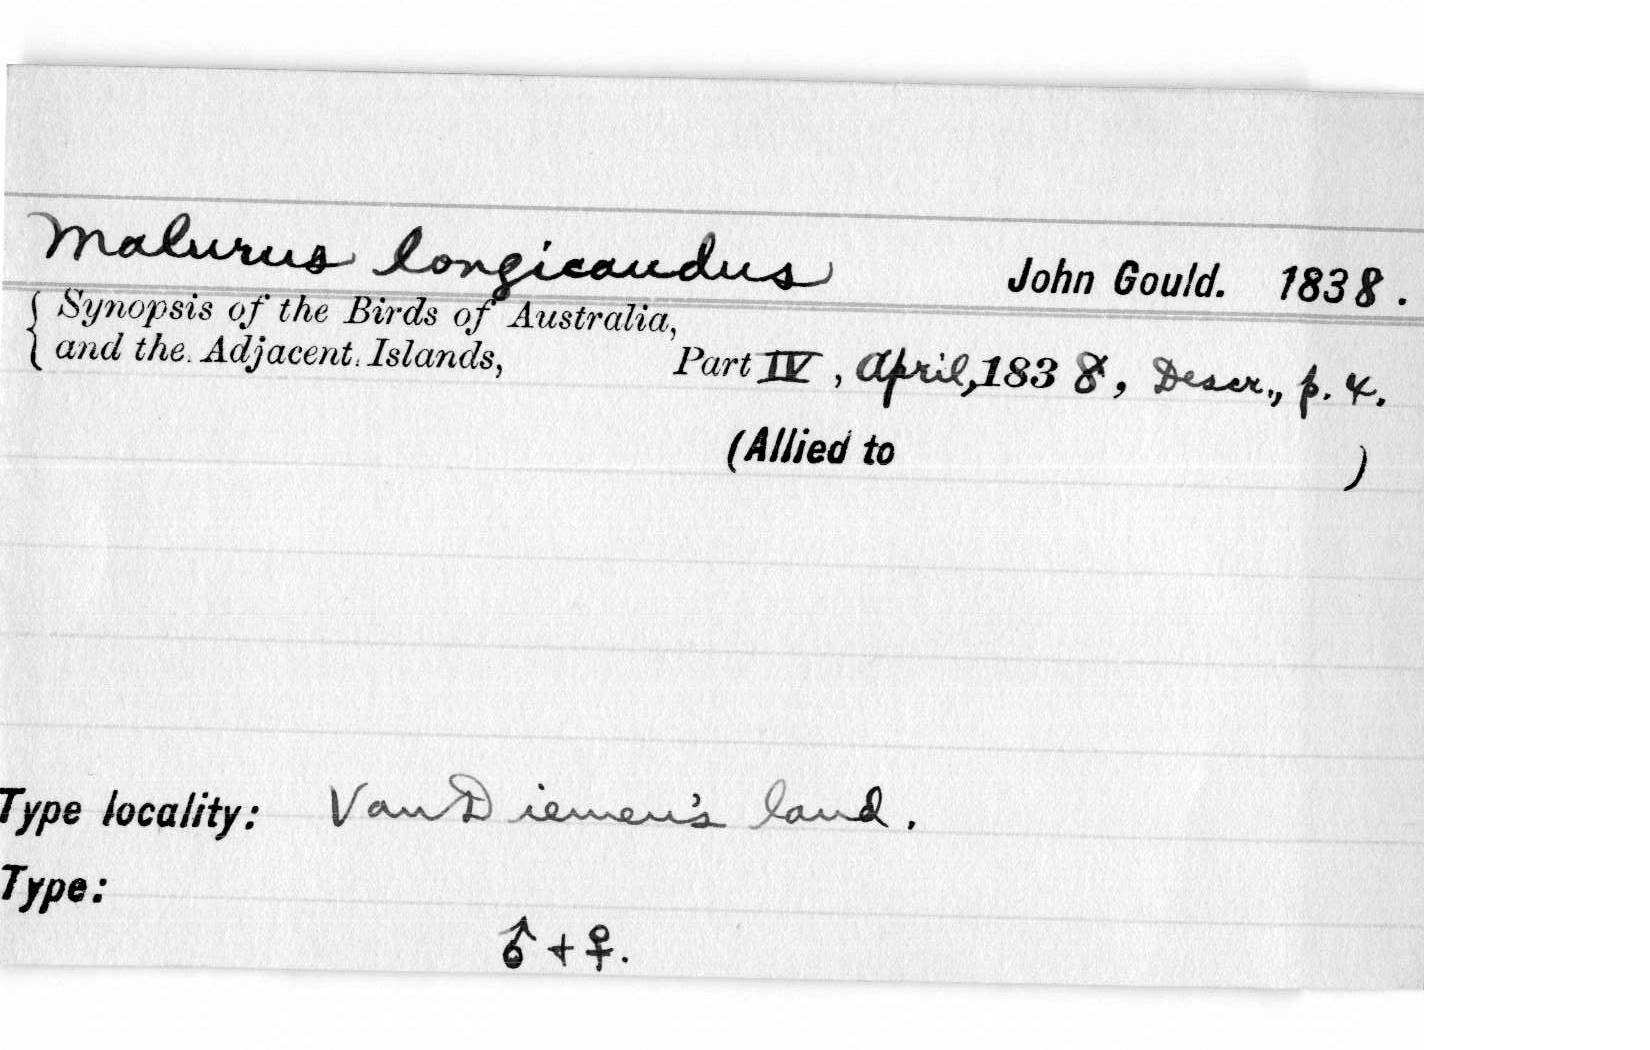 Malurus longicaudus John Gould. 1838.
{ Synopsis of the Birds of Australia,
and the Adjacent Islands, Part IV, April, 1838, Descr., p. 4.
(Allied to )
Type locality: Van Diemen's land.
Type:
♂ + ♀.